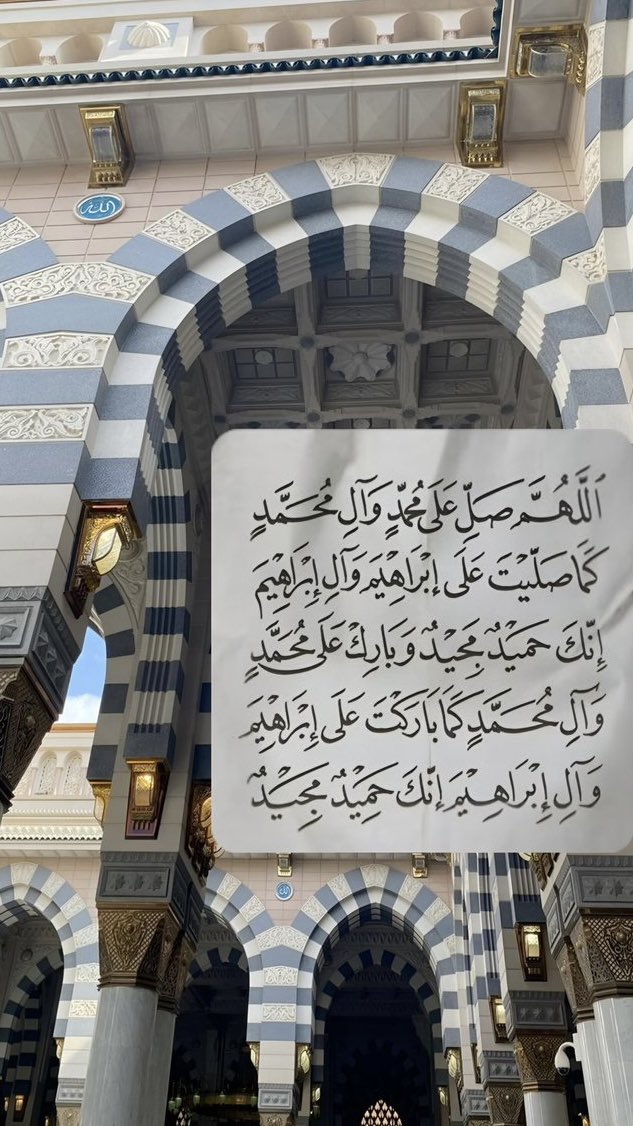 الله
اَللَّهُمَّ صَلِّ عَلَى مُحَمَّدٍ وَآلِ مُحَمَّدٍ
كَمَا صَلَّيْتَ عَلَى إِبْرَاهِيمَ وَآلِ إِبْرَاهِيمَ
إِنَّكَ حَمِيْدٌ مَجِيْدٌ وَبَارِكْ عَلَى مُحَمَّدٍ
وَآلِ مُحَمَّدٍ كَمَا بَارَكْتَ عَلَى إِبْرَاهِيْمَ
وَآلِ إِبْرَاهِيْمَ إِنَّكَ حَمِيْدٌ مَجِيْدٌ